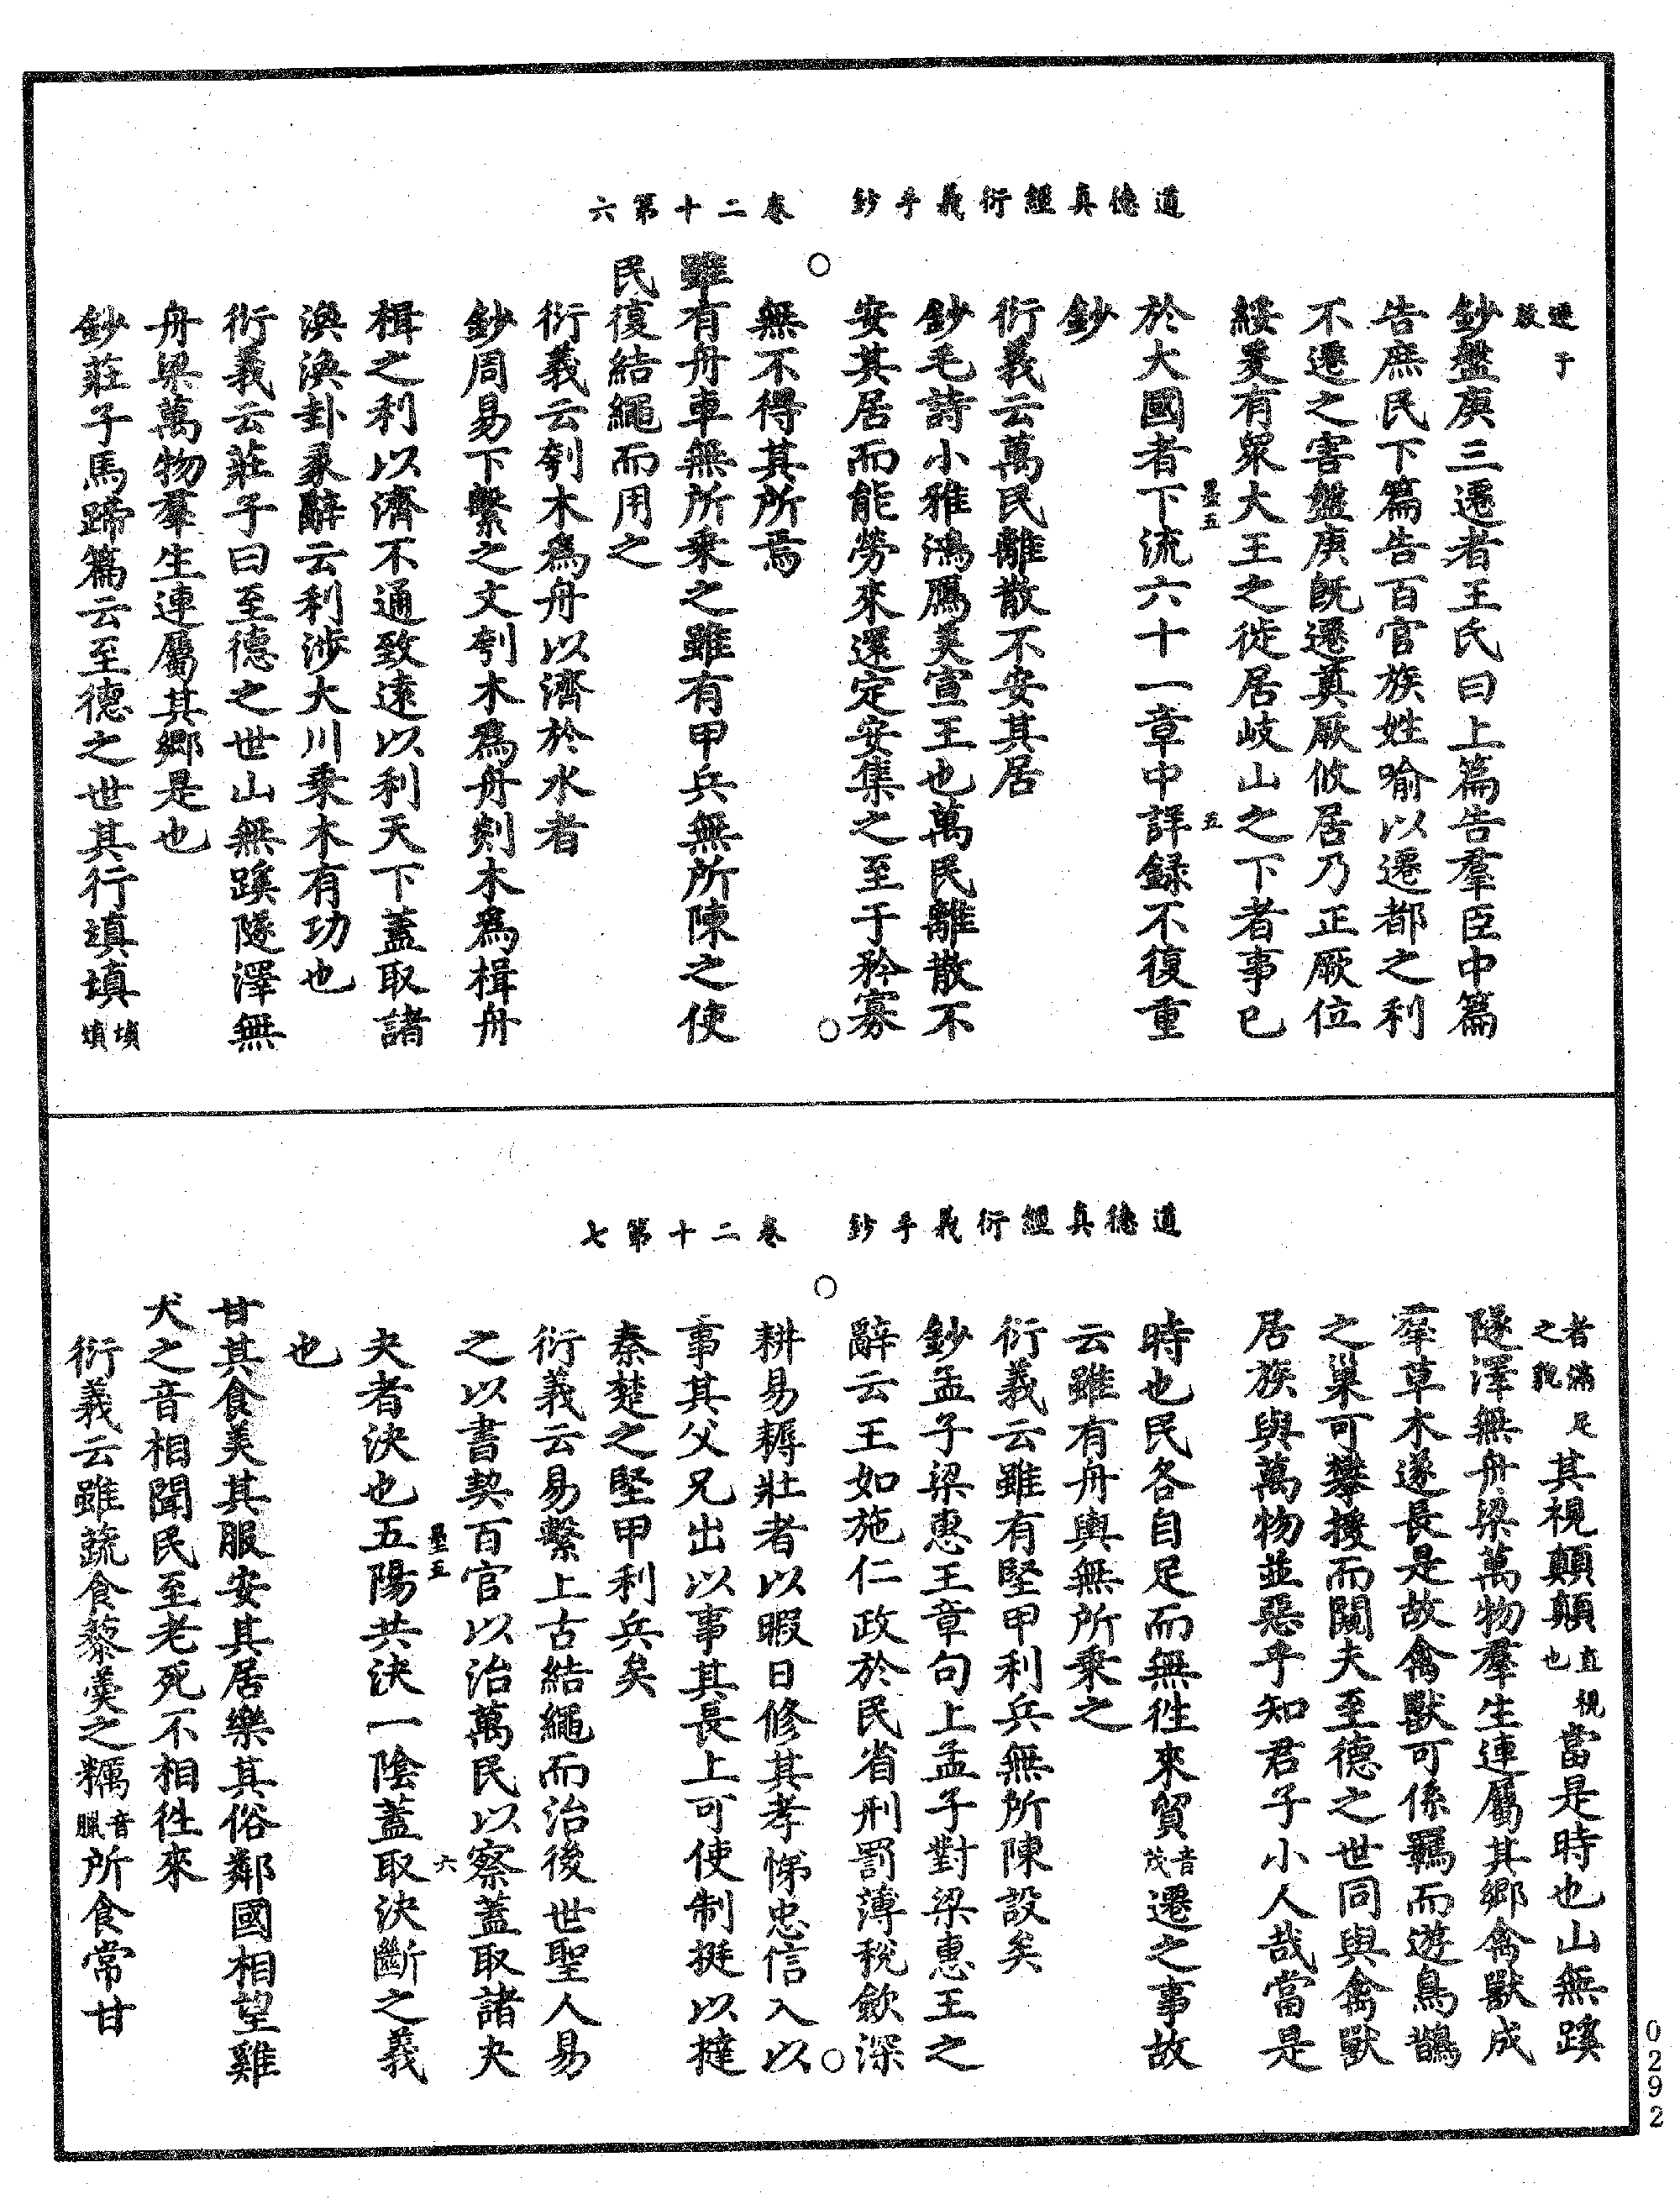 道德真經衍義手鈔　卷二十第六
遷于
殷
鈔盤庚三遷者王氏曰上篇告羣臣中篇
告庶民下篇告百官族姓喻以遷都之利
不遷之害盤庚旣遷奠厥攸居乃正厥位
綏爰有衆大王之徙居岐山之下者事已
墨五　五
於大國者下流六十一章中詳録不復重
鈔
衍義云萬民離散不安其居
鈔毛詩小雅鴻鴈美宣王也萬民離散不
安其居而能勞來還定安集之至于矜寡
無不得其所焉
雖有舟車無所乘之雖有甲兵無所陳之使
民復結繩而用之
衍義云刳木爲舟以濟於水者
鈔周易下繫之文刳木爲舟剡木爲楫舟
楫之利以濟不通致遠以利天下蓋取諸
渙渙卦彖辭云利涉大川乘木有功也
衍義云莊子曰至德之世山無蹊隧澤無
舟梁萬物羣生連屬其鄉是也
鈔莊子馬蹄篇云至德之世其行填填填填
道德真經衍義手鈔　卷二十第七
者滿足之皃其視顛顛直視也當是時也山無蹊
隧澤無舟梁萬物羣生連屬其鄉禽獸成
羣草木遂長是故禽獸可係羈而遊鳥鵲
之巢可攀援而闚夫至德之世同與禽獸
居族與萬物並惡乎知君子小人哉當是
時也民各自足而無徃來貿音茂遷之事故
云雖有舟輿無所乘之
衍義云雖有堅甲利兵無所陳設矣
鈔孟子梁惠王章句上孟子對梁惠王之
辭云王如施仁政於民省刑罰薄稅歛深
耕易耨壯者以暇日修其孝悌忠信入以
事其父兄出以事其長上可使制挺以撻
秦楚之堅甲利兵矣
衍義云易繫上古結繩而治後世聖人易
之以書契百官以治萬民以察蓋取諸夬
墨五　六
夬者決也五陽共決一陰蓋取決斷之義
也
甘其食美其服安其居樂其俗鄰國相望雞
犬之音相聞民至老死不相徃來
衍義云雖蔬食藜羹之糲音臘所食常甘
0292